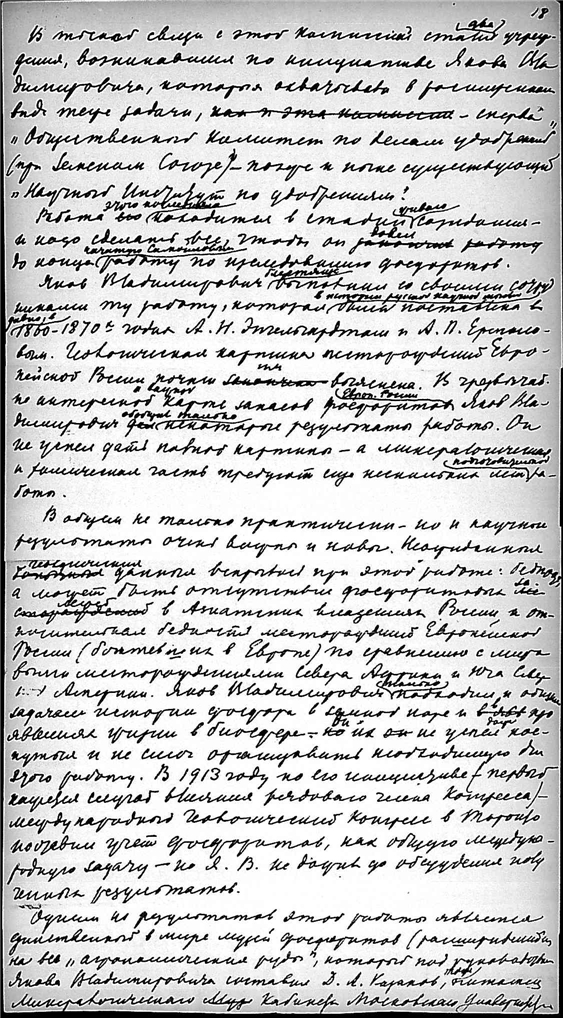 18
В тесной связи с этой комиссией стали два учреж-
дения, возникавшия по инициативе Якова Вла-
димировича, которыя охватывали в расширенном
виде те же задачи, как и эта комиссия - сперва
"Общественный комитет по делам удобрений"
(при Земском Союзе) - позже и ныне существующий
"Научный Институт по удобрениям".
этого последнего живого
Работа его находится в стадии созидания -
и надо сделать все, чтобы он довел закончил работу
начатую Самойловым
до конца работу по изследованию фосфоритов.
блестяще
Яков Владимирович выполнил со своими сотруд-
в истории русской научной мысли
никами ту работу, которая была поставлена в
давно, в
1860-1870х годах А. Н. Энгельгардтом и А. П. Ермоло-
вым. Геологическая картина месторождений Евро-
пейской России почти выяснена. В чрезвычай-
и важной Европ. России
но интересной карте запасов фосфоритов Яков Вла-
обобщил только
димирович дал некоторые результаты работы. Он
не успел дать полной картины - а минералогическая
подготовительной
и химическая часть требуют еще нескольких лет ра-
боты.
В общем не только практически - но и научно
результаты очень важны и новы. Неожиданныя
геологическия
данныя вскрылись при этой работе: бедность,
а может быть отсутствие фосфоритовых за-
лежей в Азиатских владениях России и от-
носительная бедность месторождений Европейской
России (богатейших в Европе) по сравнению с миро-
выми месторождениями Севера Африки и Юга Севе-
только
Америки. Яков Владимирович подходил к общим
задачам истории фосфора в земной коре и в про-
явлениях жизни в биосфере - но их он не успел кос-
нуться и не смог организовать необходимую для
этого работу. В 1913 году по его инициативе (первый
кажется случай влияния рядового члена Конгресса) -
международный Геологический Конгресс в Торонто
поставил учет фосфоритов, как общую междуна-
родную задачу - но Я. В. не дожил до обсуждения полу-
ченных результатов.
Одним из результатов этой работы является
единственный в мире музей фосфоритов (расширившийся
на все "агрономическия руды", который под руководством
Якова Владимировича составил Д. Л. Казаков,
Минералогического Кабинета Московского Университета